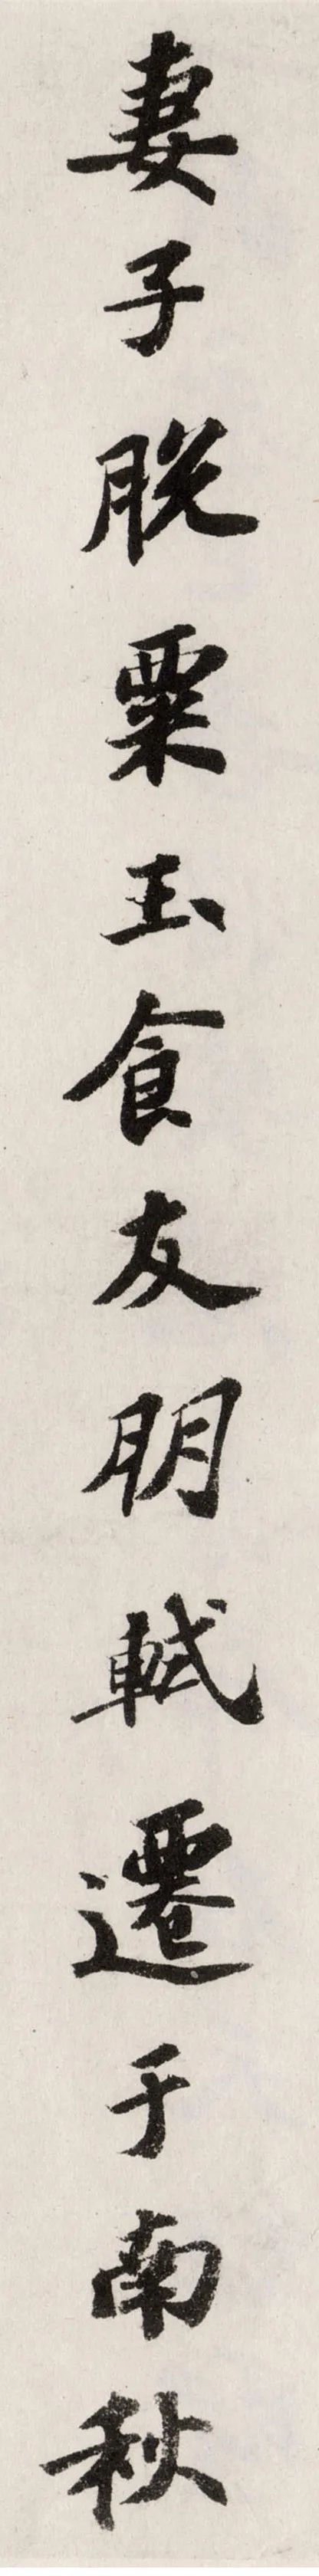 妻子脱粟玉食友朋軾遷于南秋